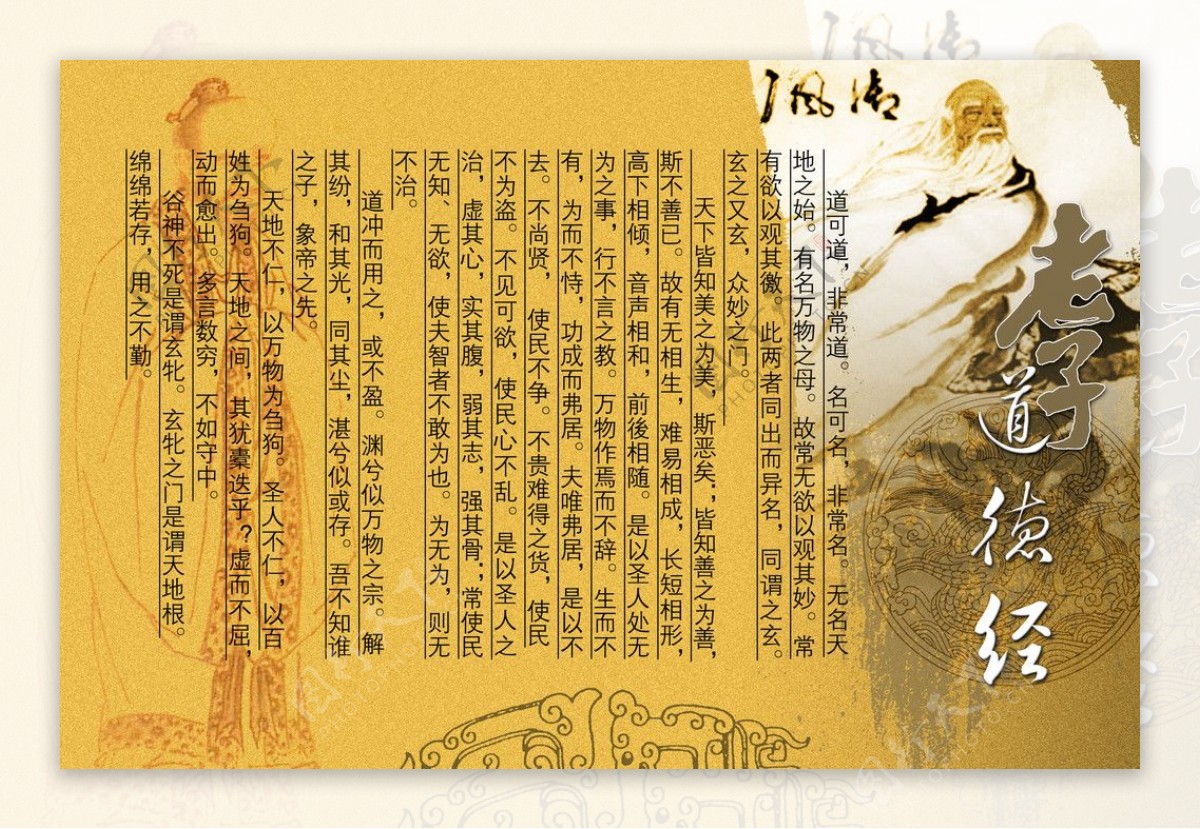 老子
道德经
道可道，非常道。名可名，非常名。无名天
地之始。有名万物之母。故常无欲以观其妙。常
有欲以观其徼。此两者同出而异名，同谓之玄。
玄之又玄，众妙之门。
天下皆知美之为美，斯恶矣；皆知善之为善，
斯不善已。故有无相生，难易相成，长短相形，
高下相倾，音声相和，前後相随。是以圣人处无
为之事，行不言之教。万物作焉而不辞。生而不
有，为而不恃，功成而弗居。夫唯弗居，是以不
去。不尚贤，使民不争。不贵难得之货，使民
不为盗。不见可欲，使民心不乱。是以圣人之
治，虚其心，实其腹，弱其志，强其骨；常使民
无知、无欲，使夫智者不敢为也。为无为，则无
不治。
道冲而用之，或不盈。渊兮似万物之宗。解
其纷，和其光，同其尘，湛兮似或存。吾不知谁
之子，象帝之先。
天地不仁，以万物为刍狗。圣人不仁，以百
姓为刍狗。天地之间，其犹橐迭乎？虚而不屈，
动而愈出。多言数穷，不如守中。
谷神不死是谓玄牝。玄牝之门是谓天地根。
绵绵若存，用之不勤。